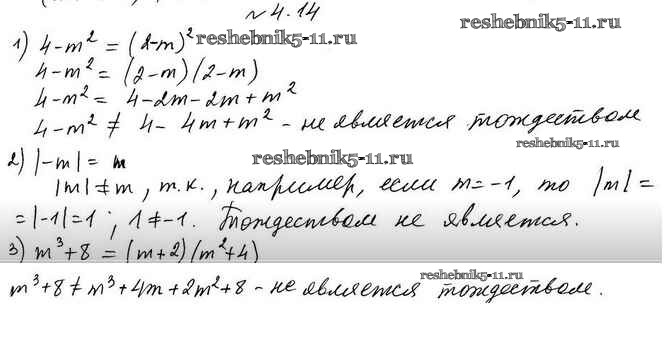 № 4.14
1) 4-m² = (2-m)² reshebnik5-11.ru
4-m² = (2-m)(2-m)
4-m² = 4-2m-2m+m²
4-m² ≠ 4-4m+m² - не является тождеством
reshebnik5-11.ru
2) |-m| = m reshebnik5-11.ru
|m| ≠ m, т.к., например, если m=-1, то |m|=
=|-1|=1; 1≠-1. Тождеством не является.
3) m³+8 = (m+2)(m²+4)
reshebnik5-11.ru
m³+8 ≠ m³+4m+2m²+8 - не является тождеством.